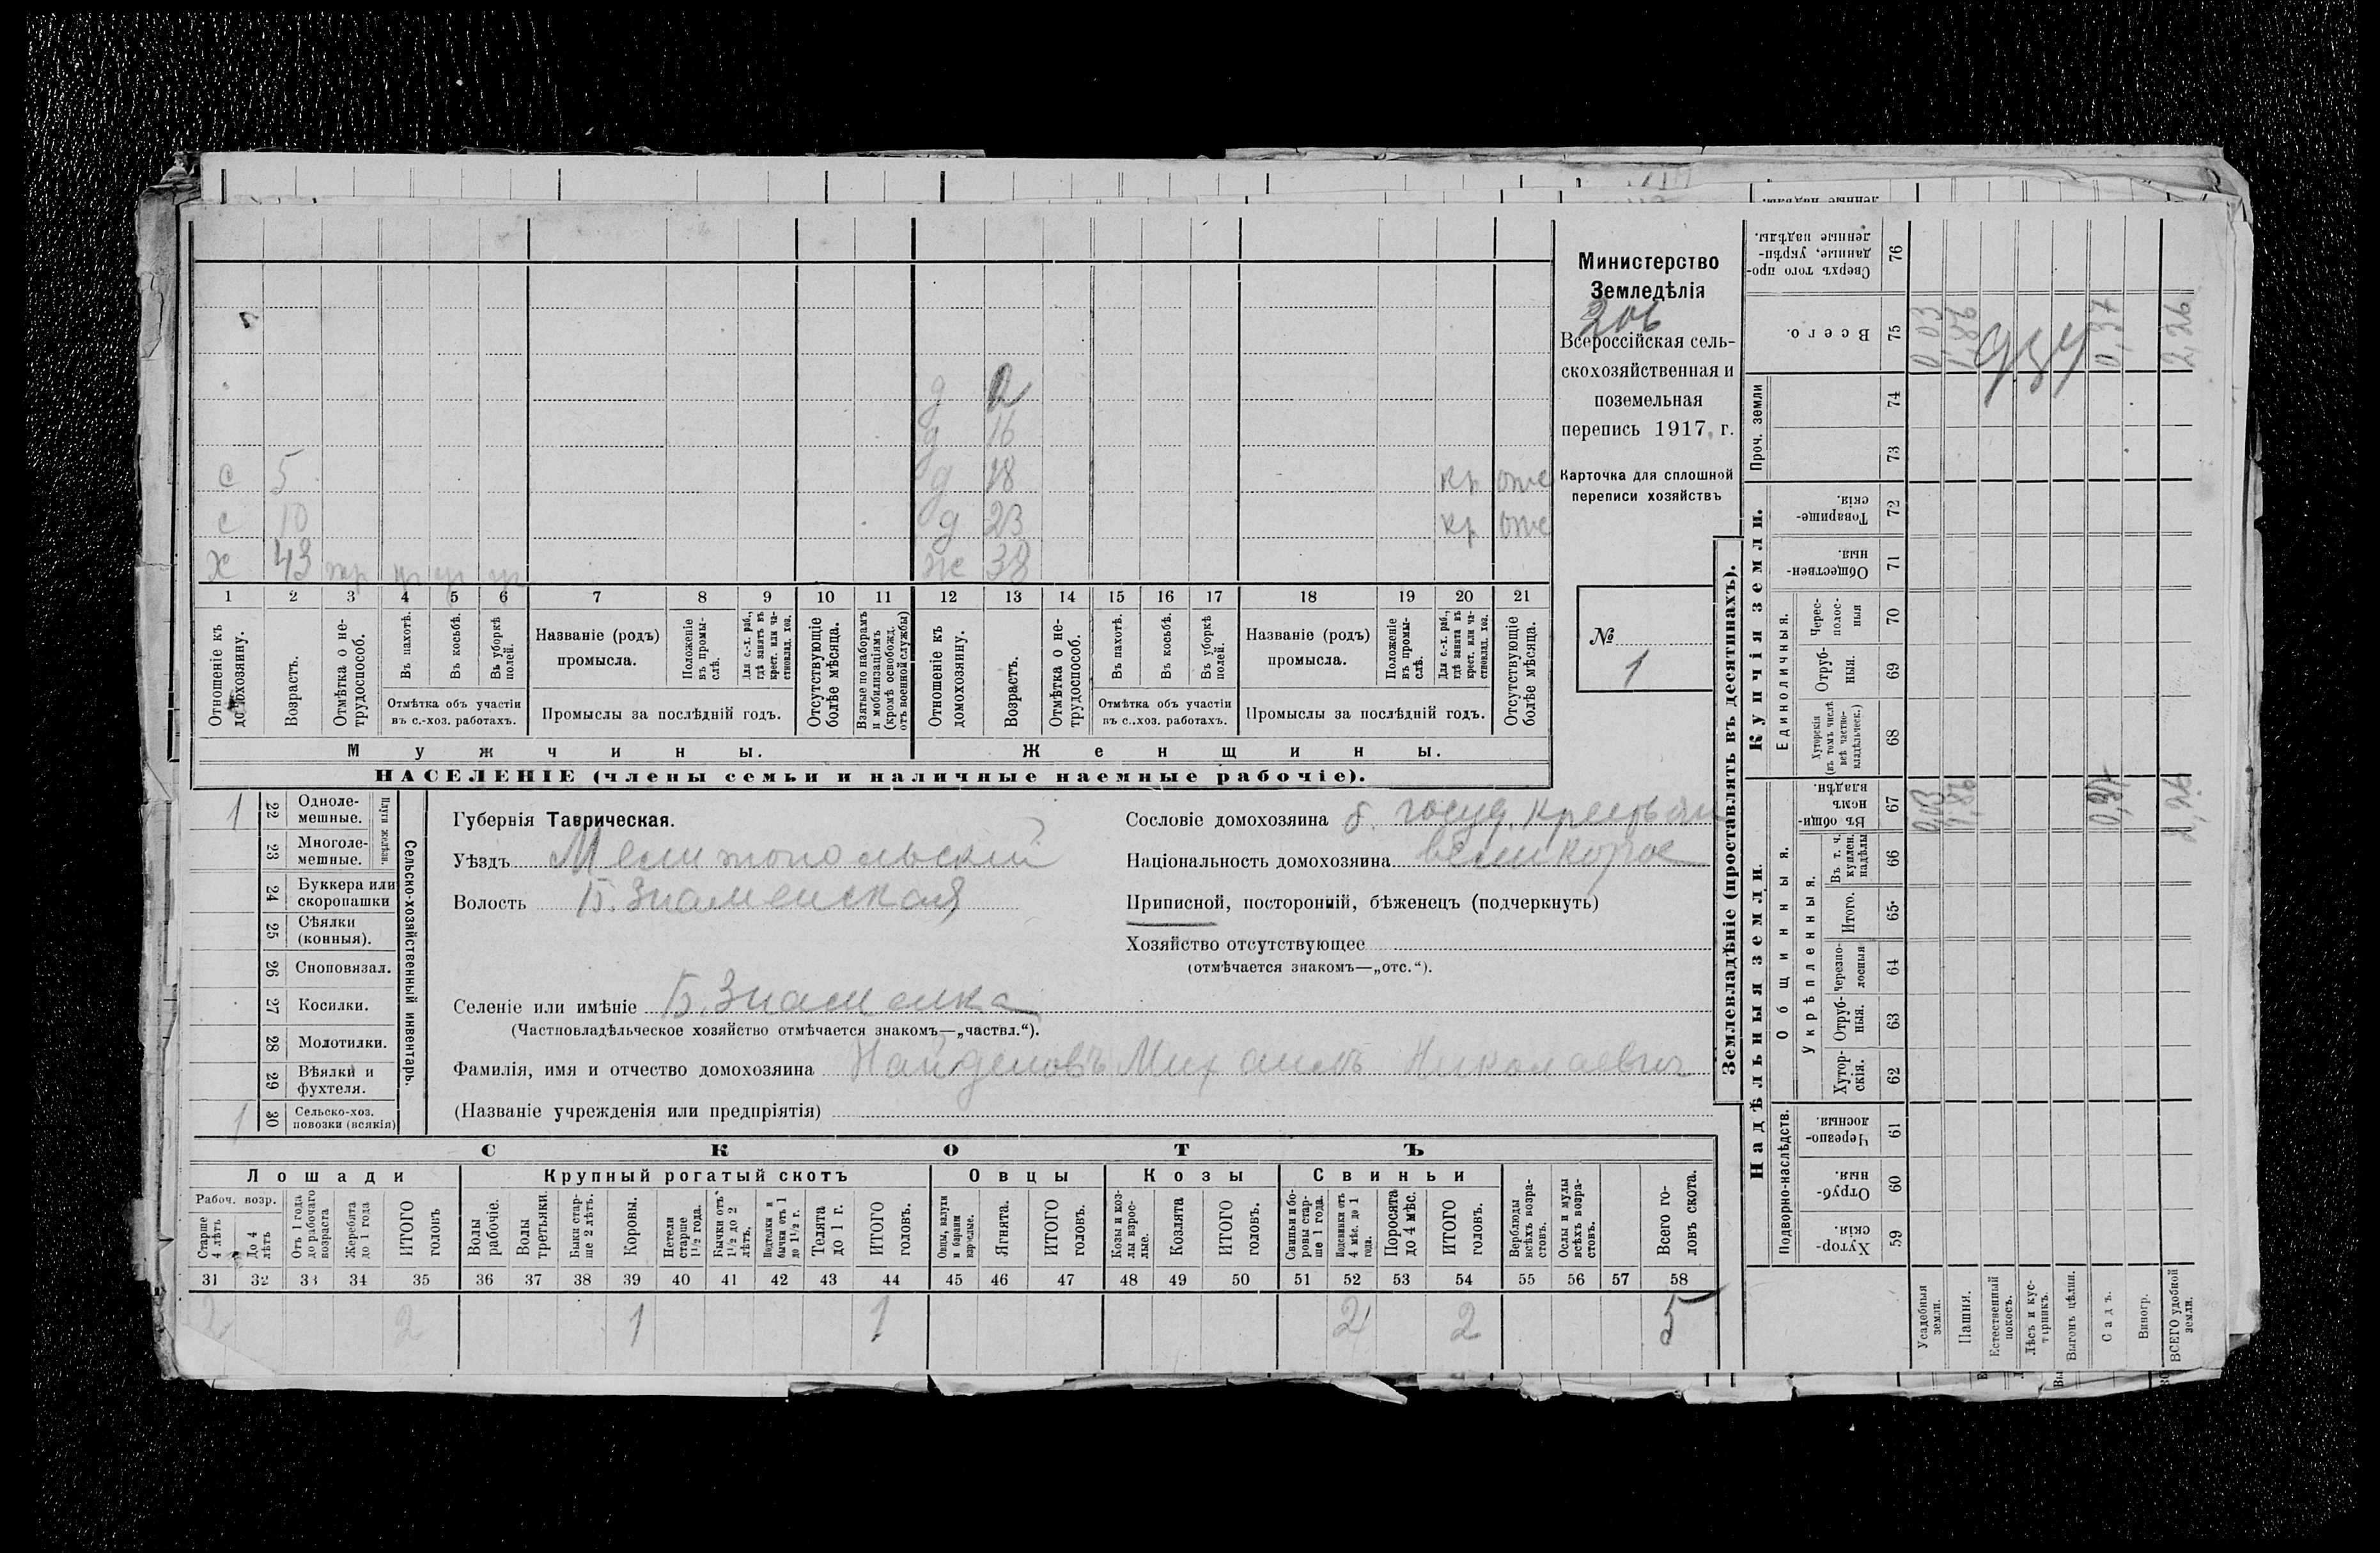 д 2
д 16
с 5 д 18 кр отс
с 10 д 23 кр отс
х 43 ж 38
1 2 3 4 5 6 7 8 9 10 11 12 13 14 15 16 17 18 19 20 21
Отношеніе къ домохозяину.
Возрастъ.
Отмѣтка о не-трудоспособ.
Въ пахотѣ.
Въ косьбѣ.
Въ уборкѣ полей.
Отмѣтка объ участіи
въ с.-хоз. работахъ.
Названіе (родъ)
промысла.
Положеніе въ промы-слѣ.
Для с.-х. раб., гдѣ занятъ въ крест. или ча-стновлад. хоз.
Промыслы за послѣдній годъ.
Отсутствующіе болѣе мѣсяца.
Взятые по наборамъ и мобилизаціямъ (кромѣ освобожд. отъ военной службы)
Отношеніе къ домохозяину.
Возрастъ.
Отмѣтка о не-трудоспособ.
Въ пахотѣ.
Въ косьбѣ.
Въ уборкѣ полей.
Отмѣтка объ участіи
въ с.-хоз. работахъ.
Названіе (родъ)
промысла.
Положеніе въ промы-слѣ.
Для с.-х. раб., гдѣ занята въ крест. или ча-стновлад. хоз.
Промыслы за послѣдній годъ.
Отсутствующіе болѣе мѣсяца.
Мужчины. Женщины.
НАСЕЛЕНІЕ (члены семьи и наличные наемные рабочіе).
Министерство
Земледѣлія
306
Всероссійская сель-
скохозяйственная и
поземельная
перепись 1917 г.
Карточка для сплошной
переписи хозяйствъ
№
1
1 22 Одноле-мешные.
23 Многоле-мешные.
Плуги желѣзн.
24 Буккера или скоропашки
25 Сѣялки (конныя).
26 Сноповязал.
27 Косилки.
28 Молотилки.
29 Вѣялки и фухтеля.
1 30 Сельско-хоз. повозки (всякія)
Сельско-хозяйственный инвентарь.
Губернія Таврическая.
Уѣздъ Мелитопольский
Волость Б. Знаменская
Селеніе или имѣніе Б. Знаменка
(Частновладѣльческое хозяйство отмѣчается знакомъ—„частвл.“).
Фамилія, имя и отчество домохозяина Найденовъ Михаилъ Николаевич
(Названіе учрежденія или предпріятія)
Сословіе домохозяина б. госуд. крестьян
Національность домохозяина великорос
Приписной, посторонній, бѣженецъ (подчеркнуть)
Хозяйство отсутствующее
(отмѣчается знакомъ—„отс.“).
СКОТЪ
Лошади Крупный рогатый скотъ Овцы Козы Свиньи
Рабоч. возр.
Старше 4 лѣтъ
До 4 лѣтъ
Отъ 1 года до рабочаго возраста
Жеребята до 1 года
ИТОГО головъ
Волы рабочіе.
Волы третьяки.
Быки стар-ше 2 лѣтъ.
Коровы.
Нетели старше 1½ года.
Бычки отъ 1½ до 2 лѣтъ.
Подтелки и бычки отъ 1 до 1½ г.
Телята до 1 г.
ИТОГО головъ.
Овцы, валухи и бараны взрослые.
Ягнята.
ИТОГО головъ.
Козы и коз-лы взрос-лые.
Козлята
ИТОГО головъ.
Свиньи и бо-ровы стар-ше 1 года.
Подсвинки отъ 4 мѣс. до 1 года.
Поросята до 4 мѣс.
ИТОГО головъ.
Верблюды всѣхъ возра-стовъ.
Ослы и мулы всѣхъ возра-стовъ.
Всего го-ловъ скота.
31 32 33 34 35 36 37 38 39 40 41 42 43 44 45 46 47 48 49 50 51 52 53 54 55 56 57 58
2 2 1 1 2 2 5
Землевладѣніе (проставлять въ десятинахъ).
Надѣльныя земли. Купчія земли. Проч. земли
Подворно-наслѣдств.
Общинныя.
Укрѣпленныя.
Единоличныя.
Хутор-скія. 59
Отруб-ныя. 60
Черезпо-лосныя. 61
Хутор-скія. 62
Отруб-ныя. 63
Черезпо-лосныя 64
Итого. 65
Въ т. ч. куплен. надѣлы 66
Въ общи-номъ владѣн. 67
Хуторскія (въ томъ числѣ всѣ частно-владѣльческ.) 68
Отруб-ныя. 69
Черес-полос-ныя 70
Обществен-ныя. 71
Товарище-скія. 72
73
74
Всего. 75
Сверхъ того про-данные, укрѣп-ленные надѣлы. 76
Усадебныя земли. 0,03 0,03
Пашня. 1,86 1,86
Естественный покосъ.
Лѣсъ и кус-тарникъ.
Выгонъ цѣлин.
Садъ. 0,37 0,37
Виногр.
ВСЕГО удобной земли. 2,26 2,26